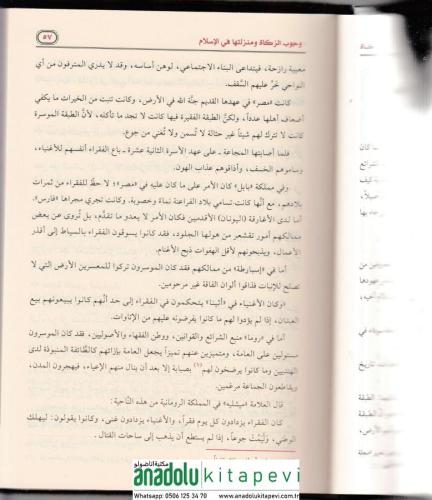 وجوب الزكاة ومنزلتها في الإسلام
٥٧
معيبة رازحة، فيتداعى البناء الاجتماعي، لوهن أساسه، وقد لا يدري المترفون من أي
النواحي خَرَّ عليهم السَّقف.
كانت «مصر» في عهدها القديم جنَّة الله في الأرض، وكانت تنبت من الخيرات ما يكفي
أضعاف أهلها عدداً، ولكنَّ الطبقة الفقيرة فيها كانت لا تجد ما تأكله، لأنَّ الطبقة الموسرة
كانت لا تترك لهم شيئاً غير حثالة لا تُسمن ولا تُغني من جوع.
فلما أصابتها المجاعة - على عهد الأسرة الثانية عشرة - باع الفقراء أنفسهم للأغنياء،
وساموهم الخسف، وأذاقوهم عذاب الهون.
وفي مملكة «بابل» كان الأمر على ما كان عليه في «مصر»؛ لا حظَّ للفقراء من ثمرات
بلادهم، مع أنَّها كانت تسامي بلاد الفراعنة نماءً وخصوبة. وكانت تجري مجراها «فارس».
أما لدى الأغارقة (اليونان) الأقدمين فكان الأمر لا يعدو ما تقدَّم، بل تُروى عن بعض
ممالكهم أمور تقشعر من هولها الجلود، فقد كانوا يسوقون الفقراء بالسياط إلى أقذر
الأعمال، ويذبحونهم لأقل الهفوات ذبح الأغنام.
أما في «إسبارطة» من ممالكهم فقد كان الموسرون تركوا للمعسرين الأرض التي لا
تصلح للإنبات فذاقوا ألوان الفاقة غير مرحومين.
«وكان الأغنياء في «أثينا» يتحكمون في الفقراء إلى حد أنَّهم كانوا يبيعونهم بيع
العبدان، إذا لم يؤدوا لهم ما كانوا يفرضونه عليهم من الإتاوات.
أما في «روما» منبع الشرائع والقوانين، ووطن الفقهاء والأصوليين، فقد كان الموسرون
مستولين على العامة، ومتميزين عنهم تميزاً يجعل العامة بإزائهم كالطَّائفة المنبوذة لدى
الهنديين وما كانوا يرضخون لهم(١) بصبابة إلا بعد أن ينال منهم الإعياء، فيهجرون المدن،
ويقاطعون الجماعة مرغمين.
قال العلامة «ميشليه» في المملكة الرومانية من هذه النَّاحية:
كان الفقراء يزدادون كل يوم فقراً، والأغنياء يزدادون غنى، وكانوا يقولون: ليهلك
الوطني، وليَمُتْ جوعاً، إذا لم يستطع أن يذهب إلى ساحات القتال .
مكتبة اناضولو
anadolu kitapevi
Whatsapp: 0506 125 34 70
www.anadolukitapevi.com